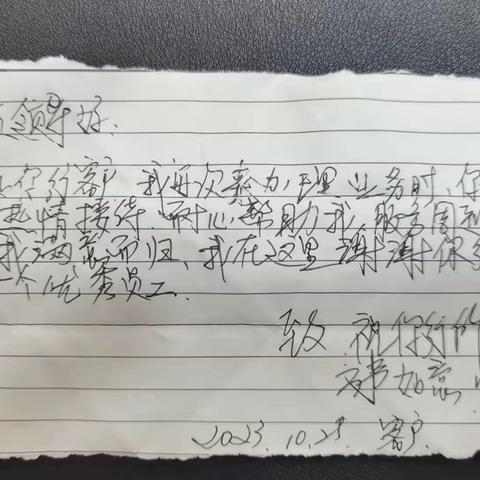 领导好:
客户 我每次来办理业务时,
热情接待.耐心帮助我,服务周到
我满意而归、我在这里谢谢你
一个优秀员工.
致 祝你们
万事如意
2023.10.25. 客户